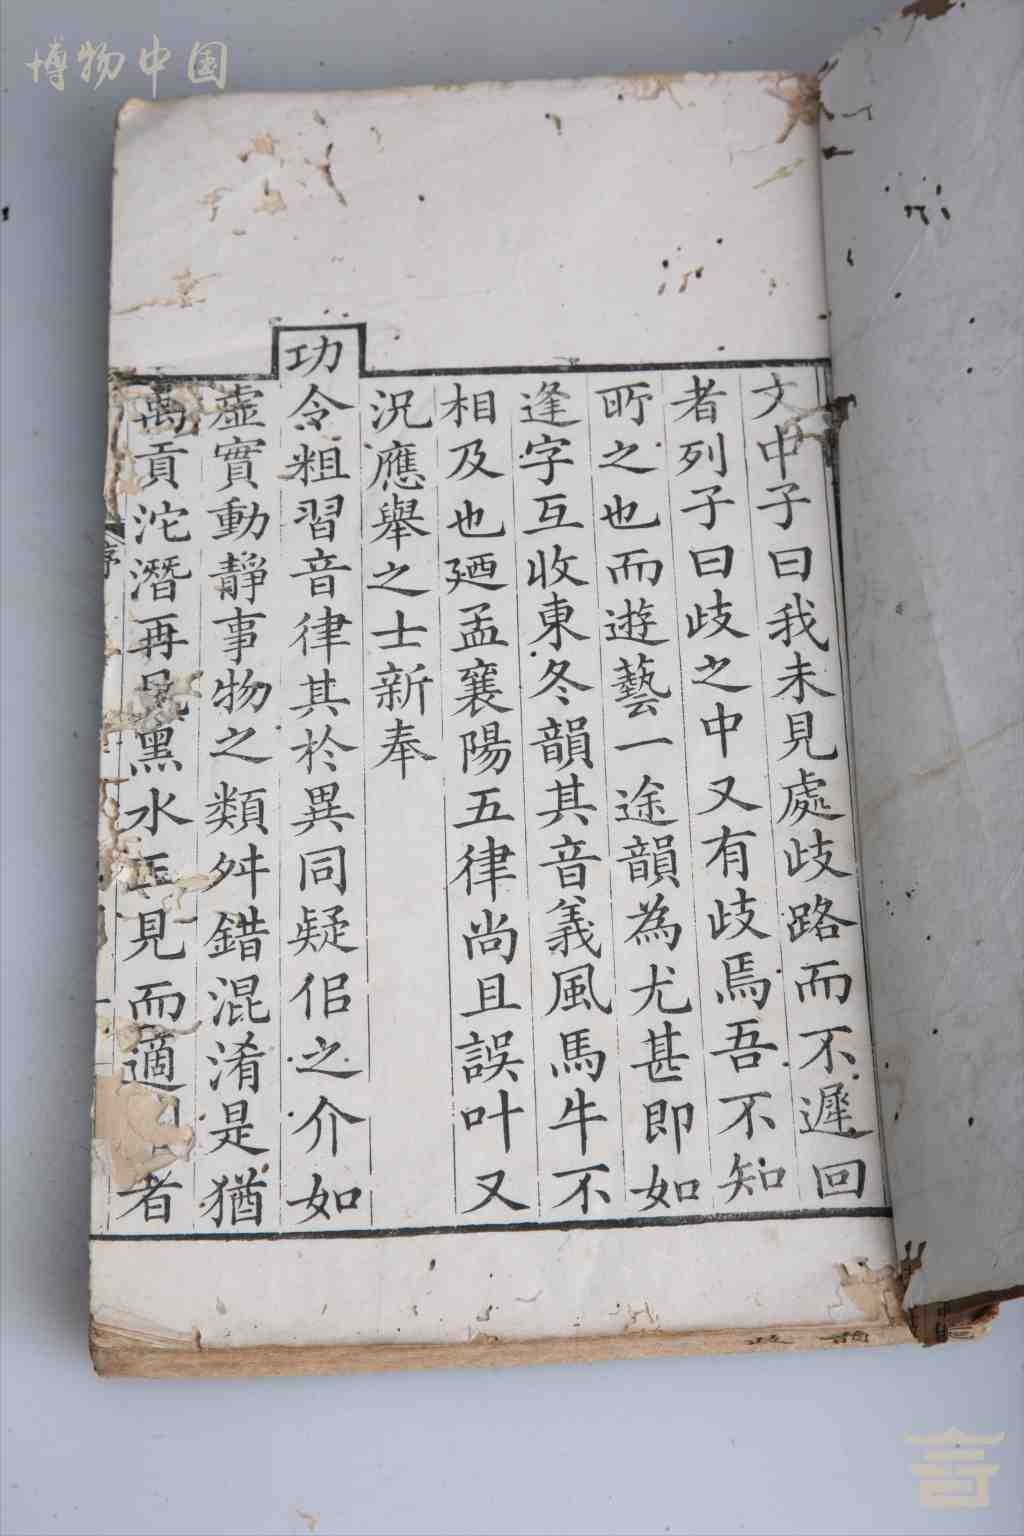 博物中国
文中子曰我未見處歧路而不遲回
者列子曰歧之中又有歧焉吾不知
所之也而遊藝一途韻為尤甚即如
逢字互收東冬韻其音義風馬牛不
相及也廼孟襄陽五律尚且誤叶又
況應舉之士新奉
功令粗習音律其於異同疑佀之介如
虛實動靜事物之類舛錯混淆是猶
貢沱潛再見黑水 見而適 者
序